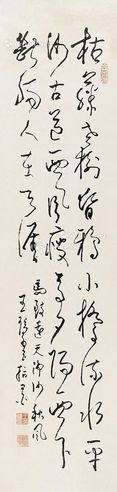 枯藤老樹昏鴉小橋流水平
沙古道西風瘦馬夕陽西下
斷腸人在天涯
馬致遠天淨沙秋風